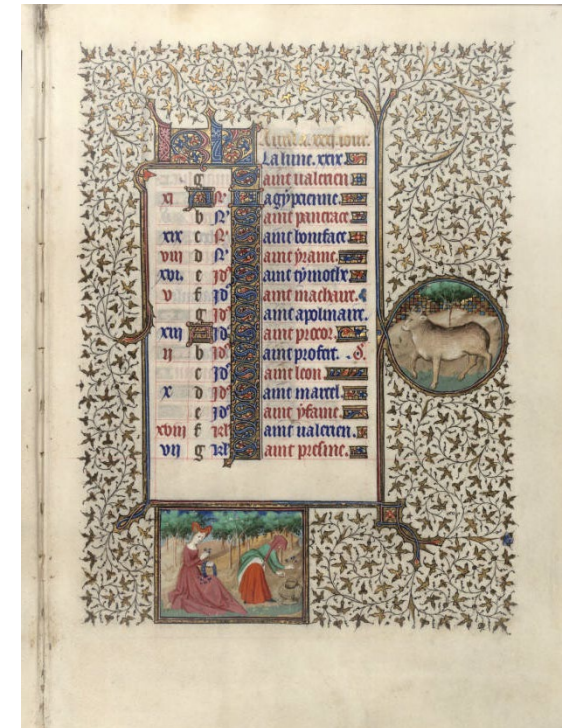 KL
La lune. xxix
g Saint ualerien
xi A N' agypcienne.
b N' Saint pancrace.
xix c N' Saint boniface.
viii d N' Saint yrame.
xvi. e Jd' Saint tymothe.
v f Jd' Saint machaire.
g Jd' Saint apolinaire.
xiii A Jd' Saint procor.
ii b Jd' Saint profect.
c Jd' Saint leon
x d Jd' Saint marcel
e Jd' Saint yfame.
xviii f kl Saint ualerien.
vii g kl Saint presme.